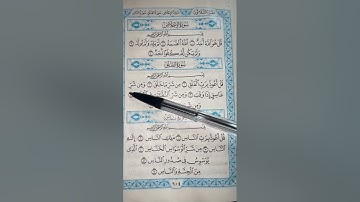 سُورَةُ الإِخْلَاصِ
بِسْمِ اللَّهِ الرَّحْمَٰنِ الرَّحِيمِ
قُلْ هُوَ اللَّهُ أَحَدٌ ١ اللَّهُ الصَّمَدُ ٢ لَمْ يَلِدْ وَلَمْ يُولَدْ ٣
وَلَمْ يَكُن لَّهُ كُفُوًا أَحَدٌ ٤
سُورَةُ الفَلَقِ
بِسْمِ اللَّهِ الرَّحْمَٰنِ الرَّحِيمِ
قُلْ أَعُوذُ بِرَبِّ الْفَلَقِ ١ مِن شَرِّ مَا خَلَقَ ٢ وَمِن شَرِّ
غَاسِقٍ إِذَا وَقَبَ ٣ وَمِن شَرِّ النَّفَّاثَاتِ
وَمِن
بِسْمِ اللَّهِ الرَّحْمَٰنِ الرَّحِيمِ
قُلْ أَعُوذُ بِرَبِّ النَّاسِ ١ مَلِكِ النَّاسِ ٢
إِلَٰهِ النَّاسِ ٣ مِن شَرِّ الْوَسْوَاسِ الْخَنَّاسِ ٤ الَّذِي
يُوَسْوِسُ فِي صُدُورِ النَّاسِ ٥
مِنَ الْجِنَّةِ وَالنَّاسِ ٦
٦٠٤